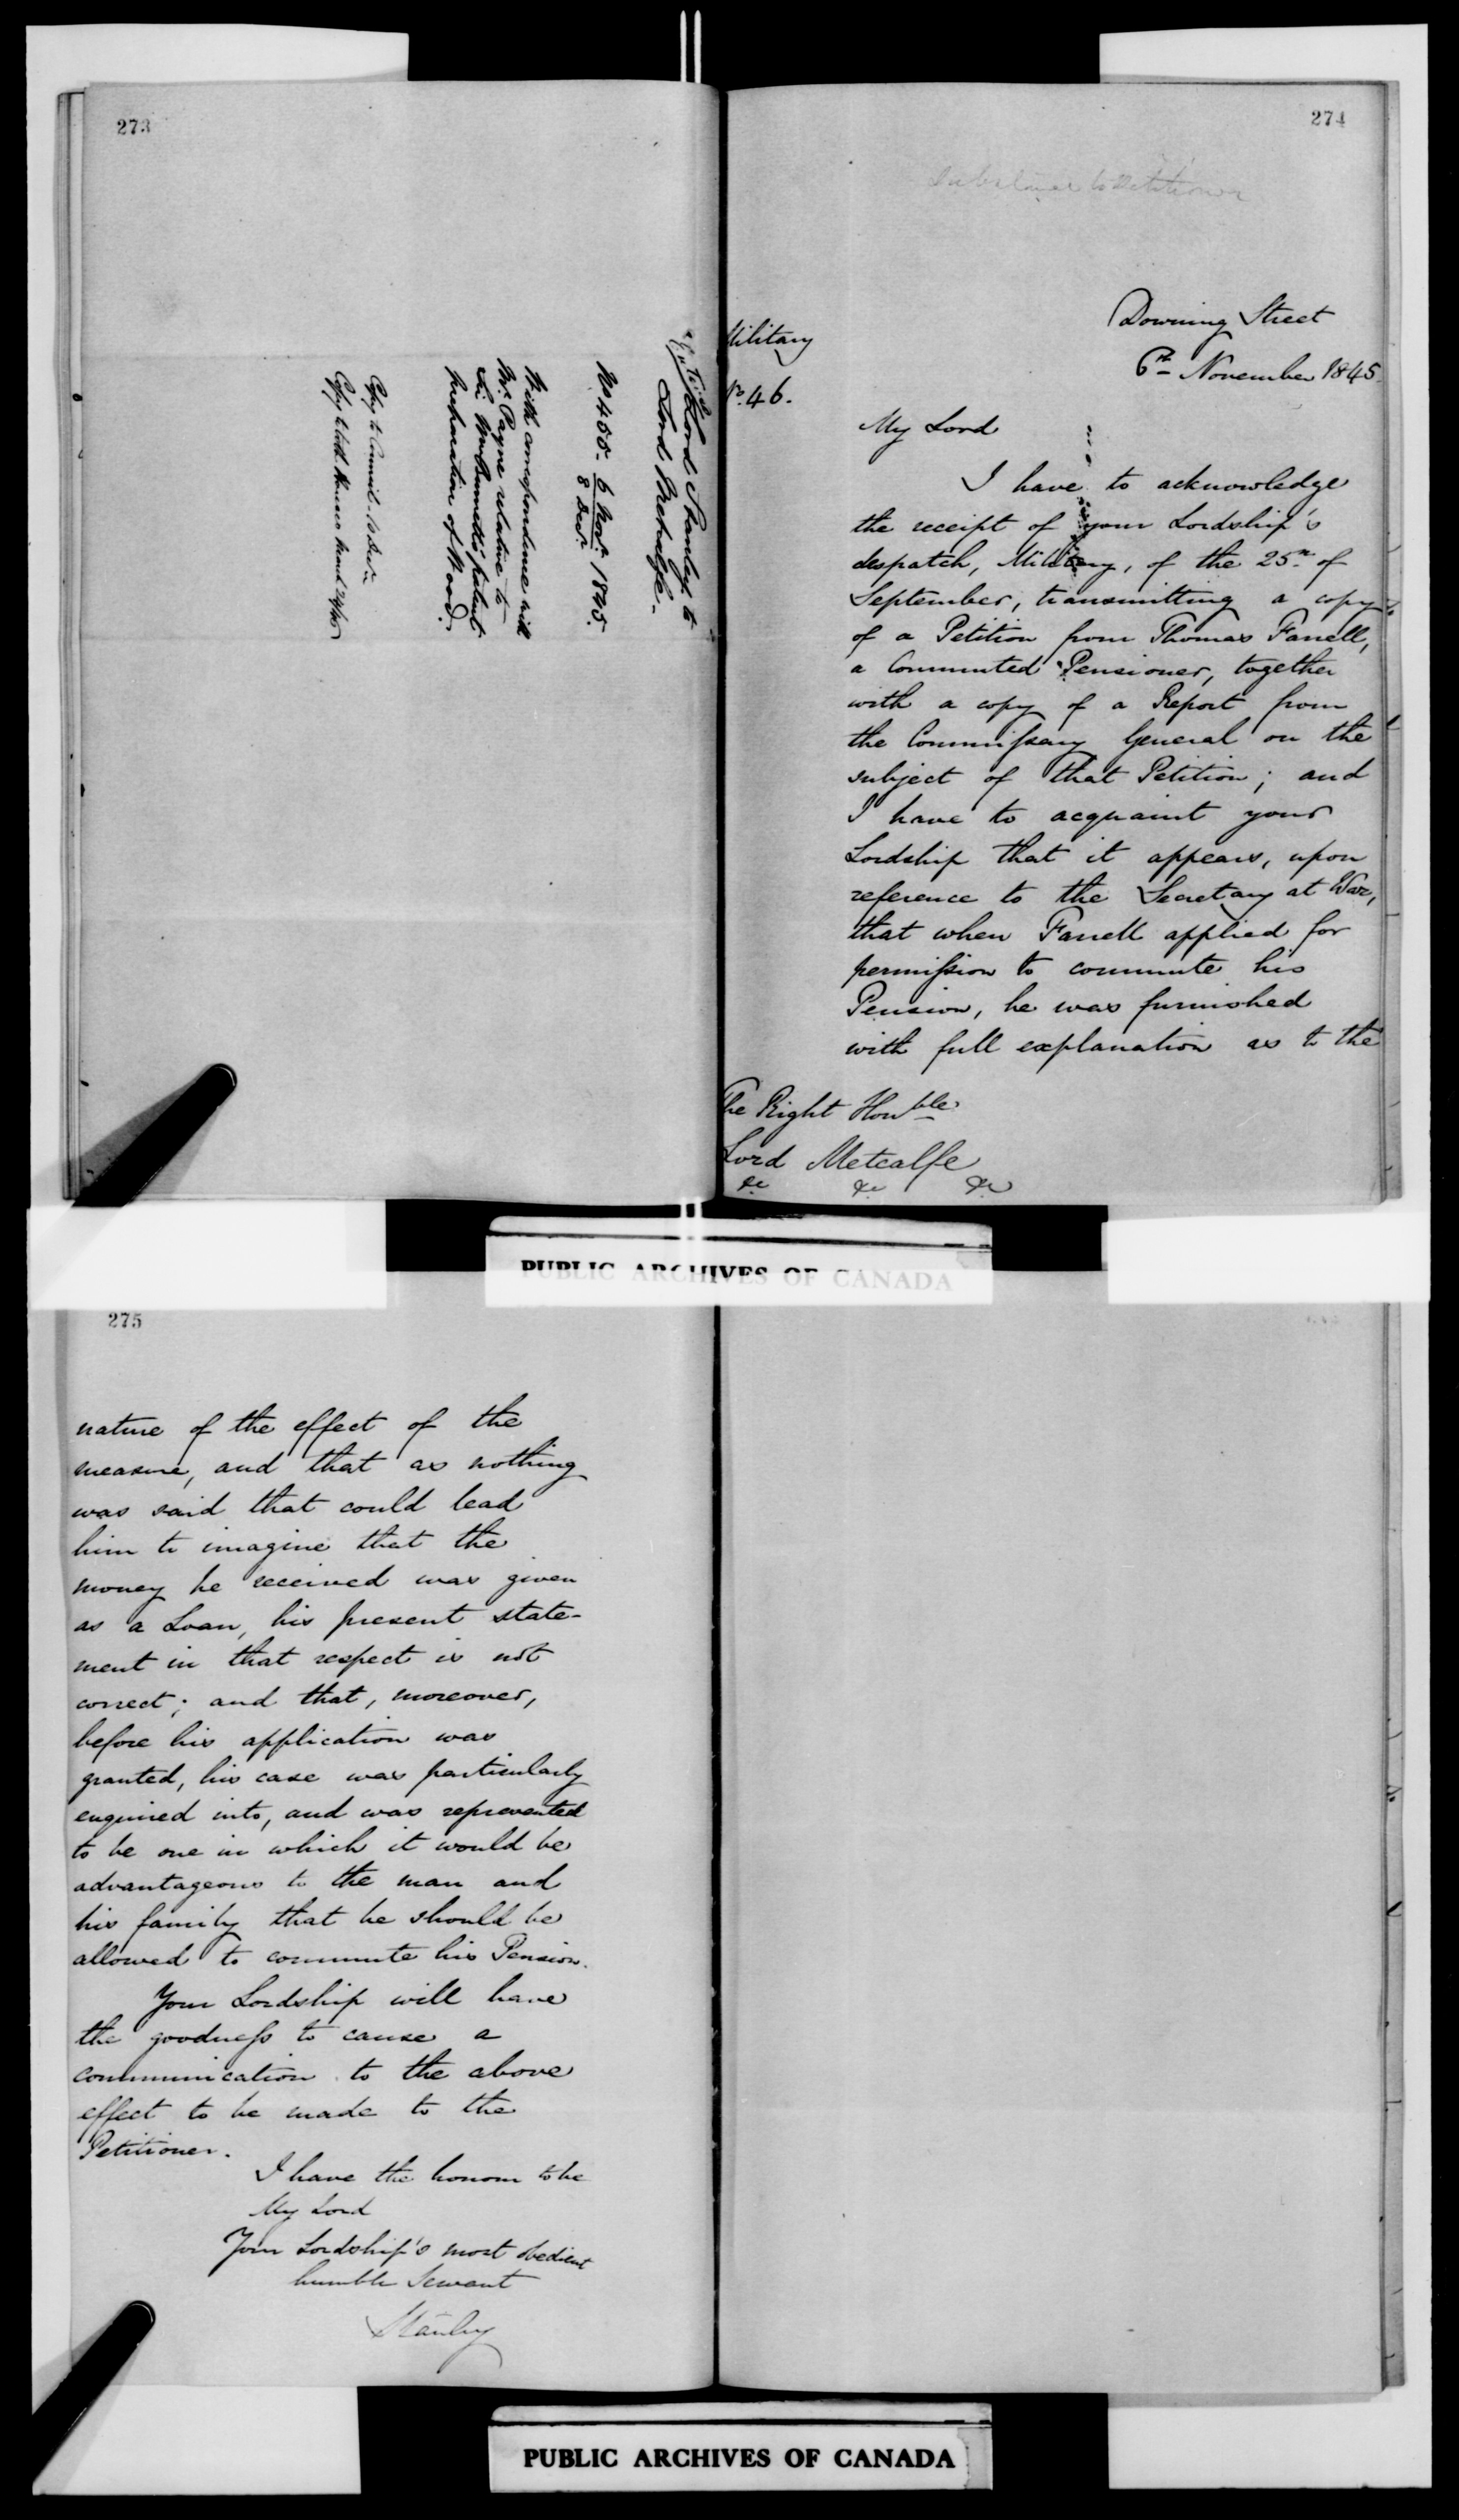 273
Lord Stanley to
Lord Metcalfe.
No 455. 6 Novr. 1845.
8 Decr.
With correspondence with
Mr. Payne relative to
Sir Wm Burnett's patent
preparation of Wood.
Copy to Council. 10 Decr.
274
Substance to Petitioner
Military
No. 46.
Downing Street
6th November 1845.
My Lord
I have to acknowledge
the receipt of your Lordship's
despatch, Military, of the 25th of
September, transmitting a copy
of a Petition from Thomas Farrell,
a Commuted Pensioner, together
with a copy of a Report from
the Commissary General on the
subject of that Petition; and
I have to acquaint your
Lordship that it appears, upon
reference to the Secretary at War,
that when Farrell applied for
permission to commute his
Pension, he was furnished
with full explanation as to the
The Right Honble
Lord Metcalfe
&c &c &c
PUBLIC ARCHIVES OF CANADA
275
nature of the effect of the
measure, and that as nothing
was said that could lead
him to imagine that the
money he received was given
as a Loan, his present state-
ment in that respect is not
correct; and that, moreover,
before his application was
granted, his case was particularly
enquired into, and was represented
to be one in which it would be
advantageous to the man and
his family that he should be
allowed to commute his Pension.
Your Lordship will have
the goodness to cause a
communication to the above
effect to be made to the
Petitioner.
I have the honour to be
My Lord
Your Lordship's most obedient
humble Servant
Stanley
PUBLIC ARCHIVES OF CANADA